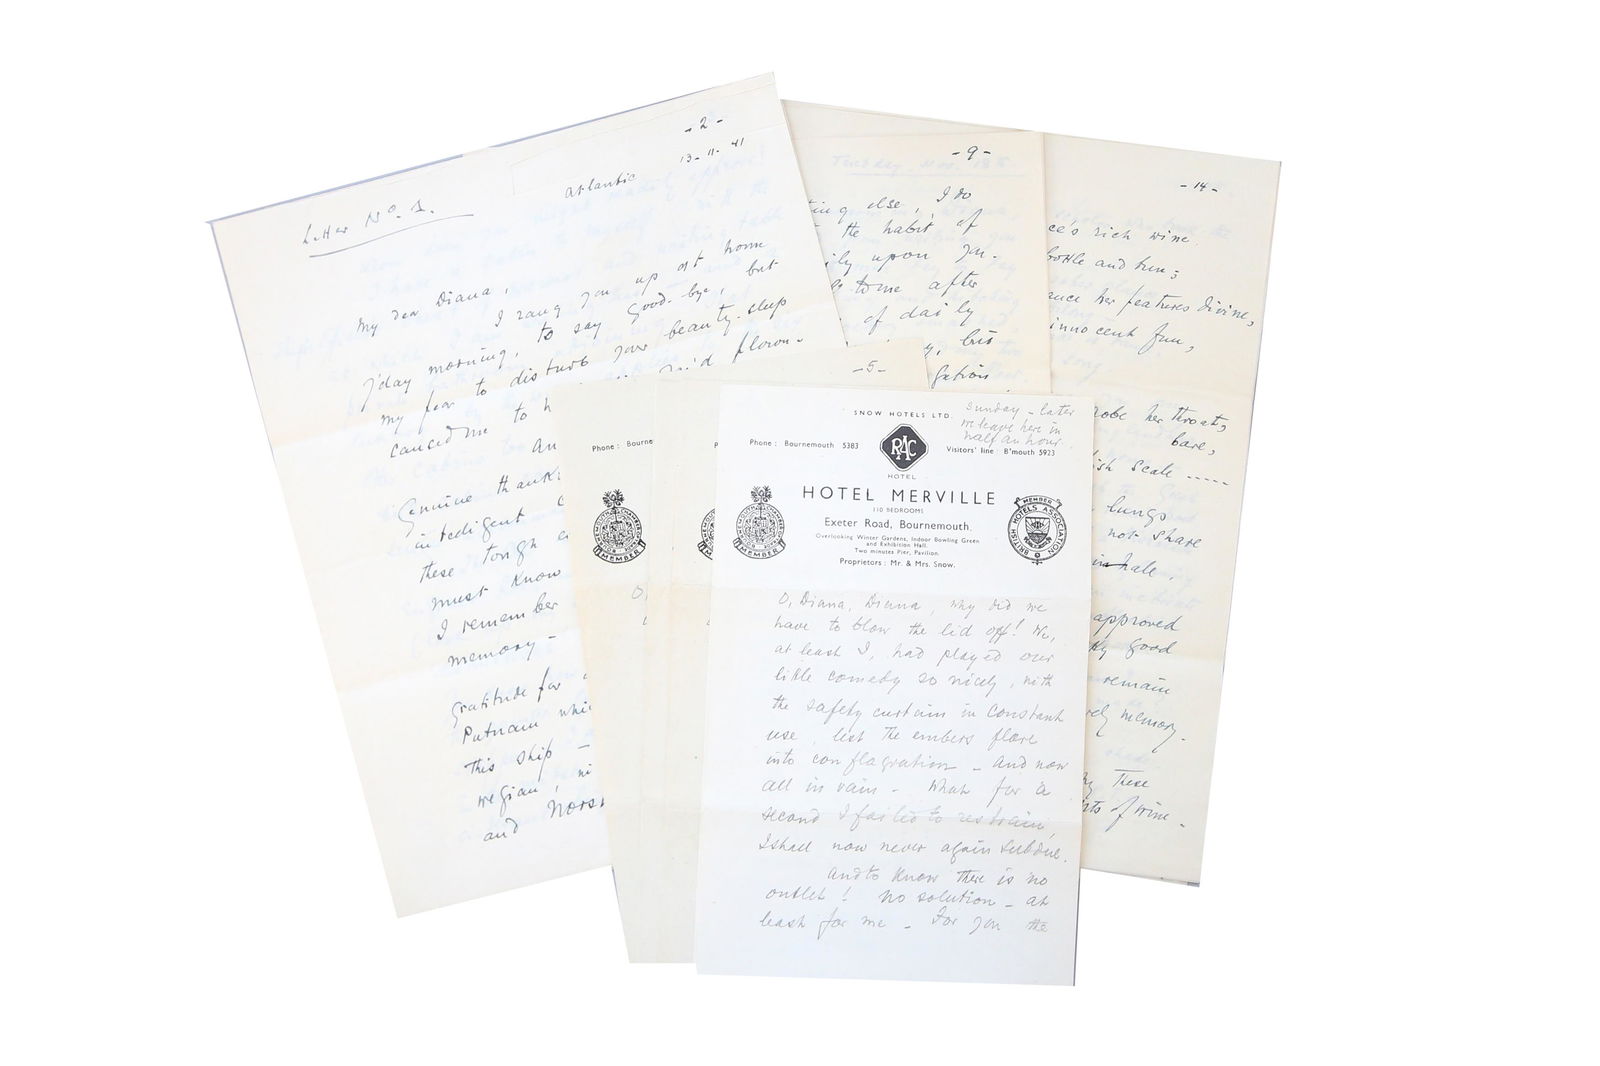 - 2 -
13-11-41
Atlantic
Letter No. 1.
My dear Diana,
I rang you up at home
y'day morning, to say good-bye, but
my fear to disturb your beauty-sleep
caused me to h
An
Genuine thank
intelligent
these tough e
must know
I remember
memory -
Gratitude for
Putnam whi
this ship -
wegian, ni
and Norse
- 9 -
Tuesday, Nov. 18th
ting else, I do
the habit of
ily upon you.
to me after
of daily
y, but
gation
- 14 -
ce's rich wine.
bottle and tun;
ance her features Divine,
innocent fun,
robe her throat,
bare,
ish scale -----
lungs
not share
inhale.
approved
good
remain
ely memory.
by these
of wine -
- 5 -
Phone: Bourne
MEMBER
O,
SNOW HOTELS LTD.
Sunday - later
we leave here in
half an hour.
Phone: Bournemouth 5383
RAC
HOTEL
Visitors' line: B'mouth 5923
HOTEL MERVILLE
110 BEDROOMS
Exeter Road, Bournemouth.
Overlooking Winter Gardens, Indoor Bowling Green
and Exhibition Hall.
Two minutes Pier, Pavilion.
Proprietors: Mr. & Mrs. Snow.
MEMBER
MEMBER
BRITISH HOTELS ASSOCIATION
O, Diana, Diana, why did we
have to blow the lid off! We,
at least I, had played our
little comedy so nicely, with
the safety curtain in constant
use, lest the embers flare
into conflagration - and now
all in vain - What for a
second I failed to restrain,
I shall now never again subdue.
And to know there is no
outlet! No solution - at
least for me - For you the